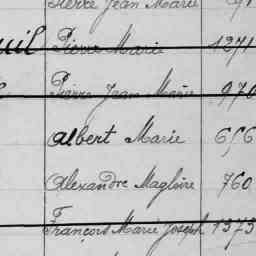 Pierre Jean Marie
Pierre Marie 1271
Pierre Jean Marie 970
Albert Marie 656
Alexandre Magloire 760
François Marie Joseph 1373